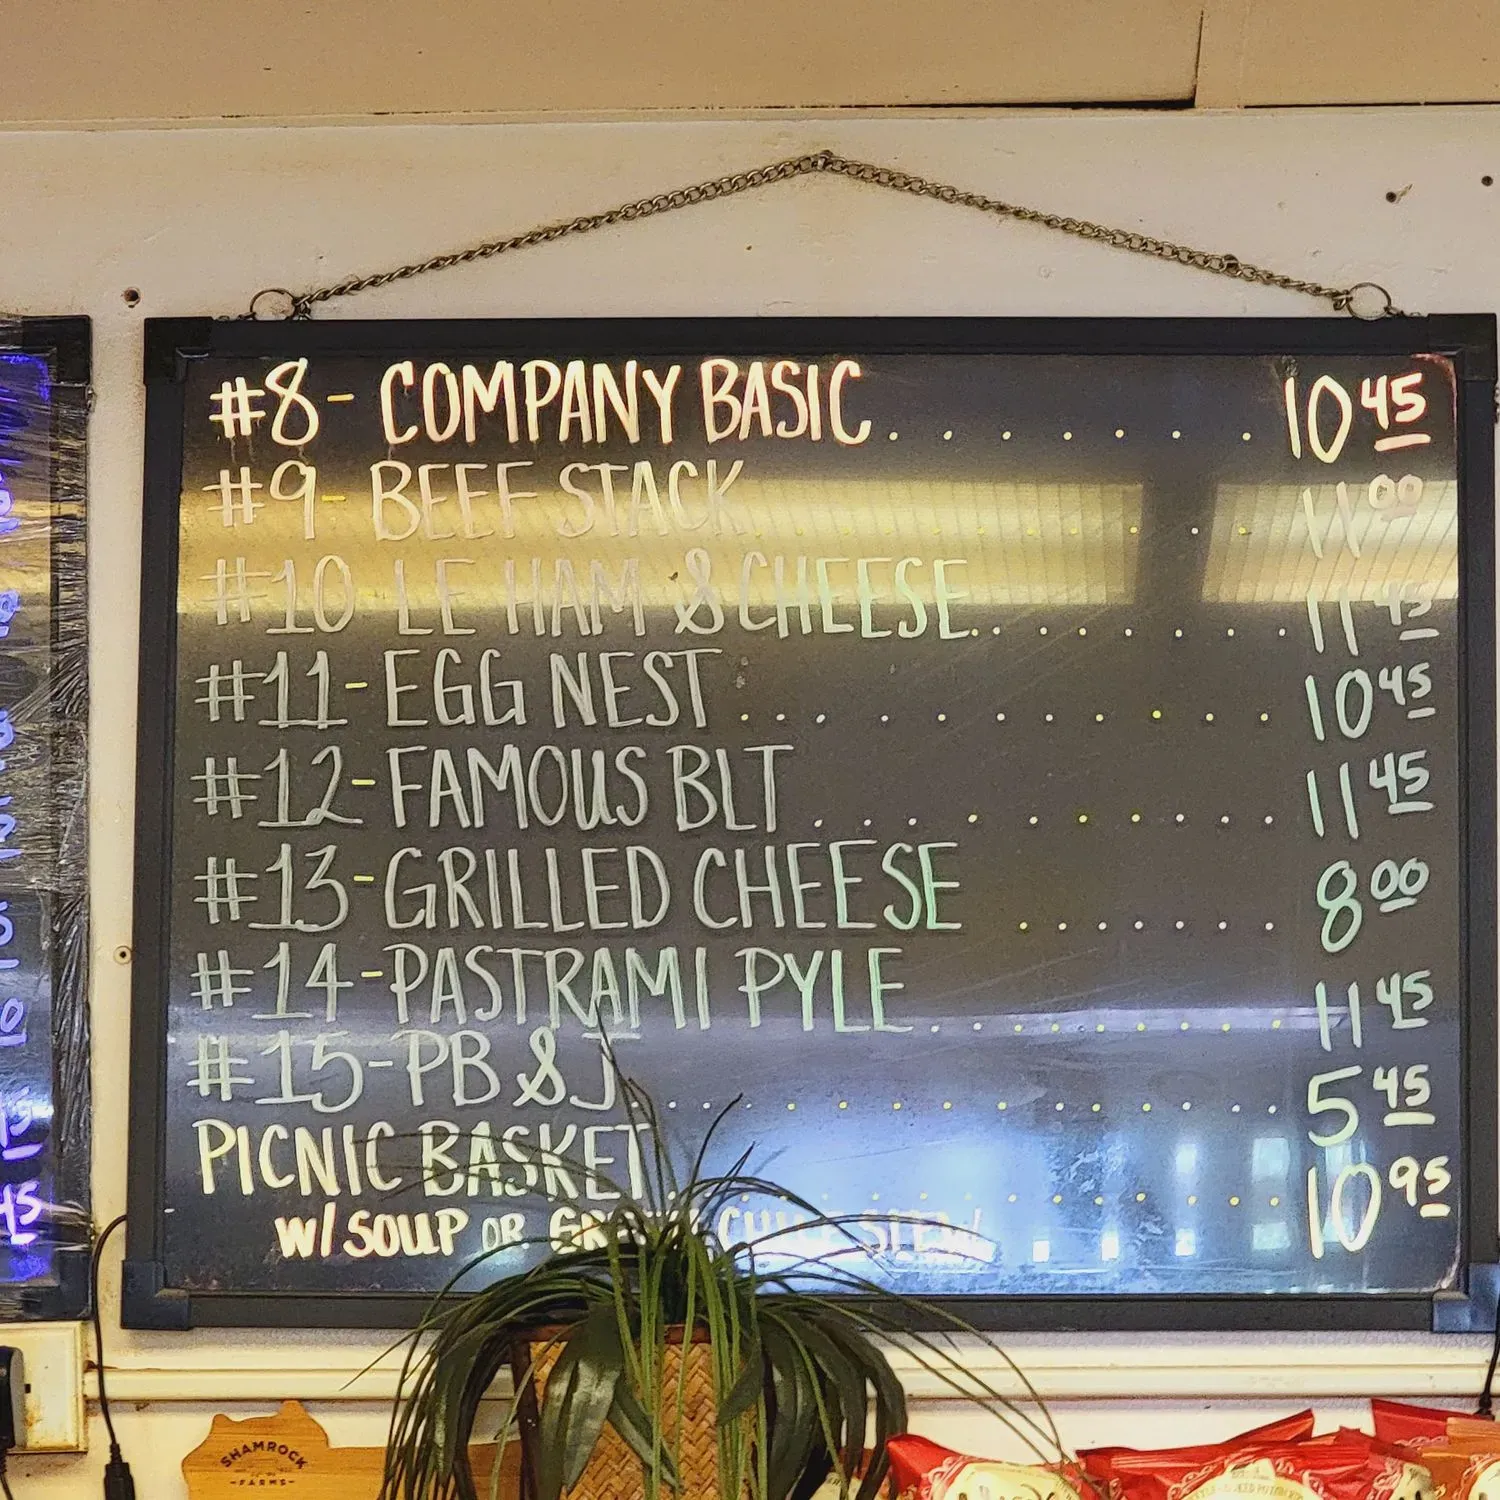 #8- COMPANY BASIC........ 10 45
#9- BEEF STACK ........ 11 00
#10 LE HAM & CHEESE........ 11 45
#11- EGG NEST........... 10 45
#12- FAMOUS BLT........ 11 45
#13- GRILLED CHEESE ...... 8 00
#14- PASTRAMI PYLE......... 11 45
#15- PB & J............. 5 45
PICNIC BASKET............ 10 95
W/ SOUP OR
SHAMROCK
FARMS